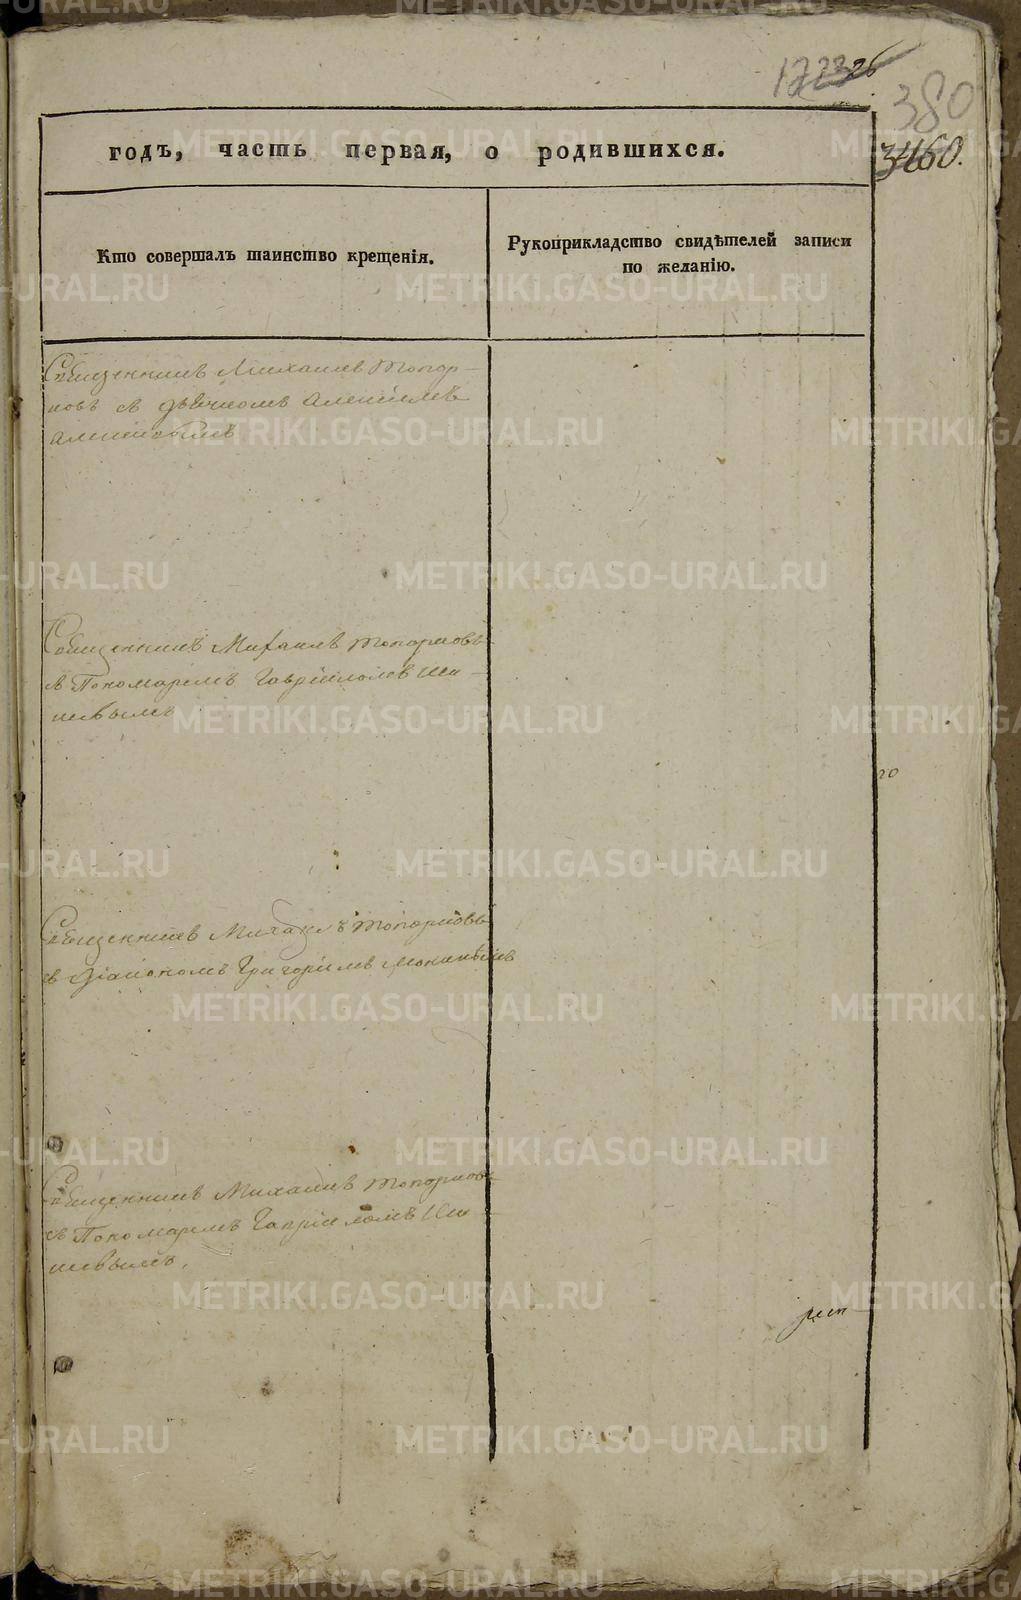 380
3460.
годъ, часть первая, о родившихся.
Кто совершалъ таинство крещенія.
Рукоприкладство свидѣтелей записи
по желанію.
Священникъ Михаилъ Топор-
ковъ съ дьячкомъ Алексіемъ
Священникъ Михаилъ Топорковъ
съ Пономаремъ Гавріиломъ Ши-
Священникъ Михаилъ Топорковъ
съ Діакономъ Григоріемъ
Священникъ Михаилъ Топорковъ
съ Пономаремъ Гавріиломъ Ши-
METRIKI.GASO-URAL.RU